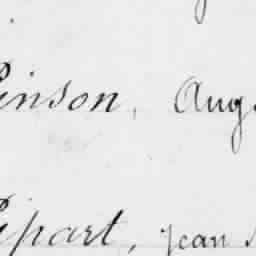 Pinson, Aug.
Ripart, Jean